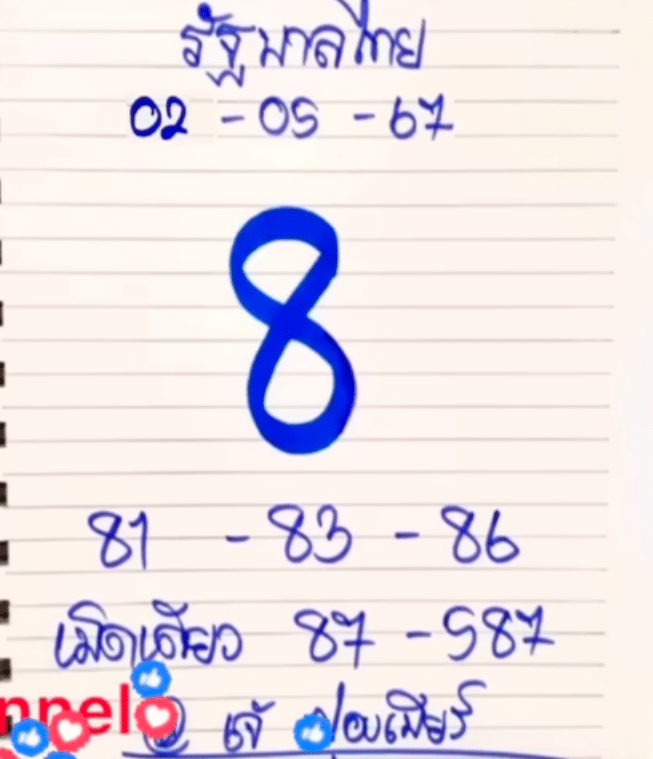 รัฐบาลไทย
02 - 05 - 67
8
81 - 83 - 86
เม็ดเดียว 87 - 587
nnel
เจ๊